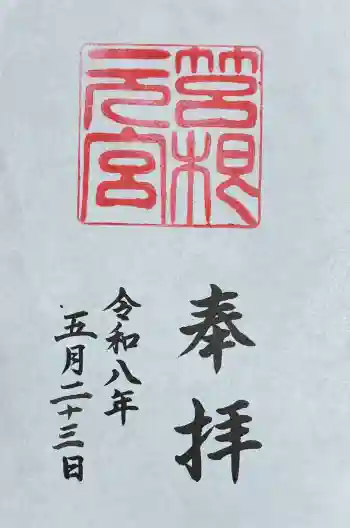 筥根
元宮
奉拝
令和八年
五月二十三日